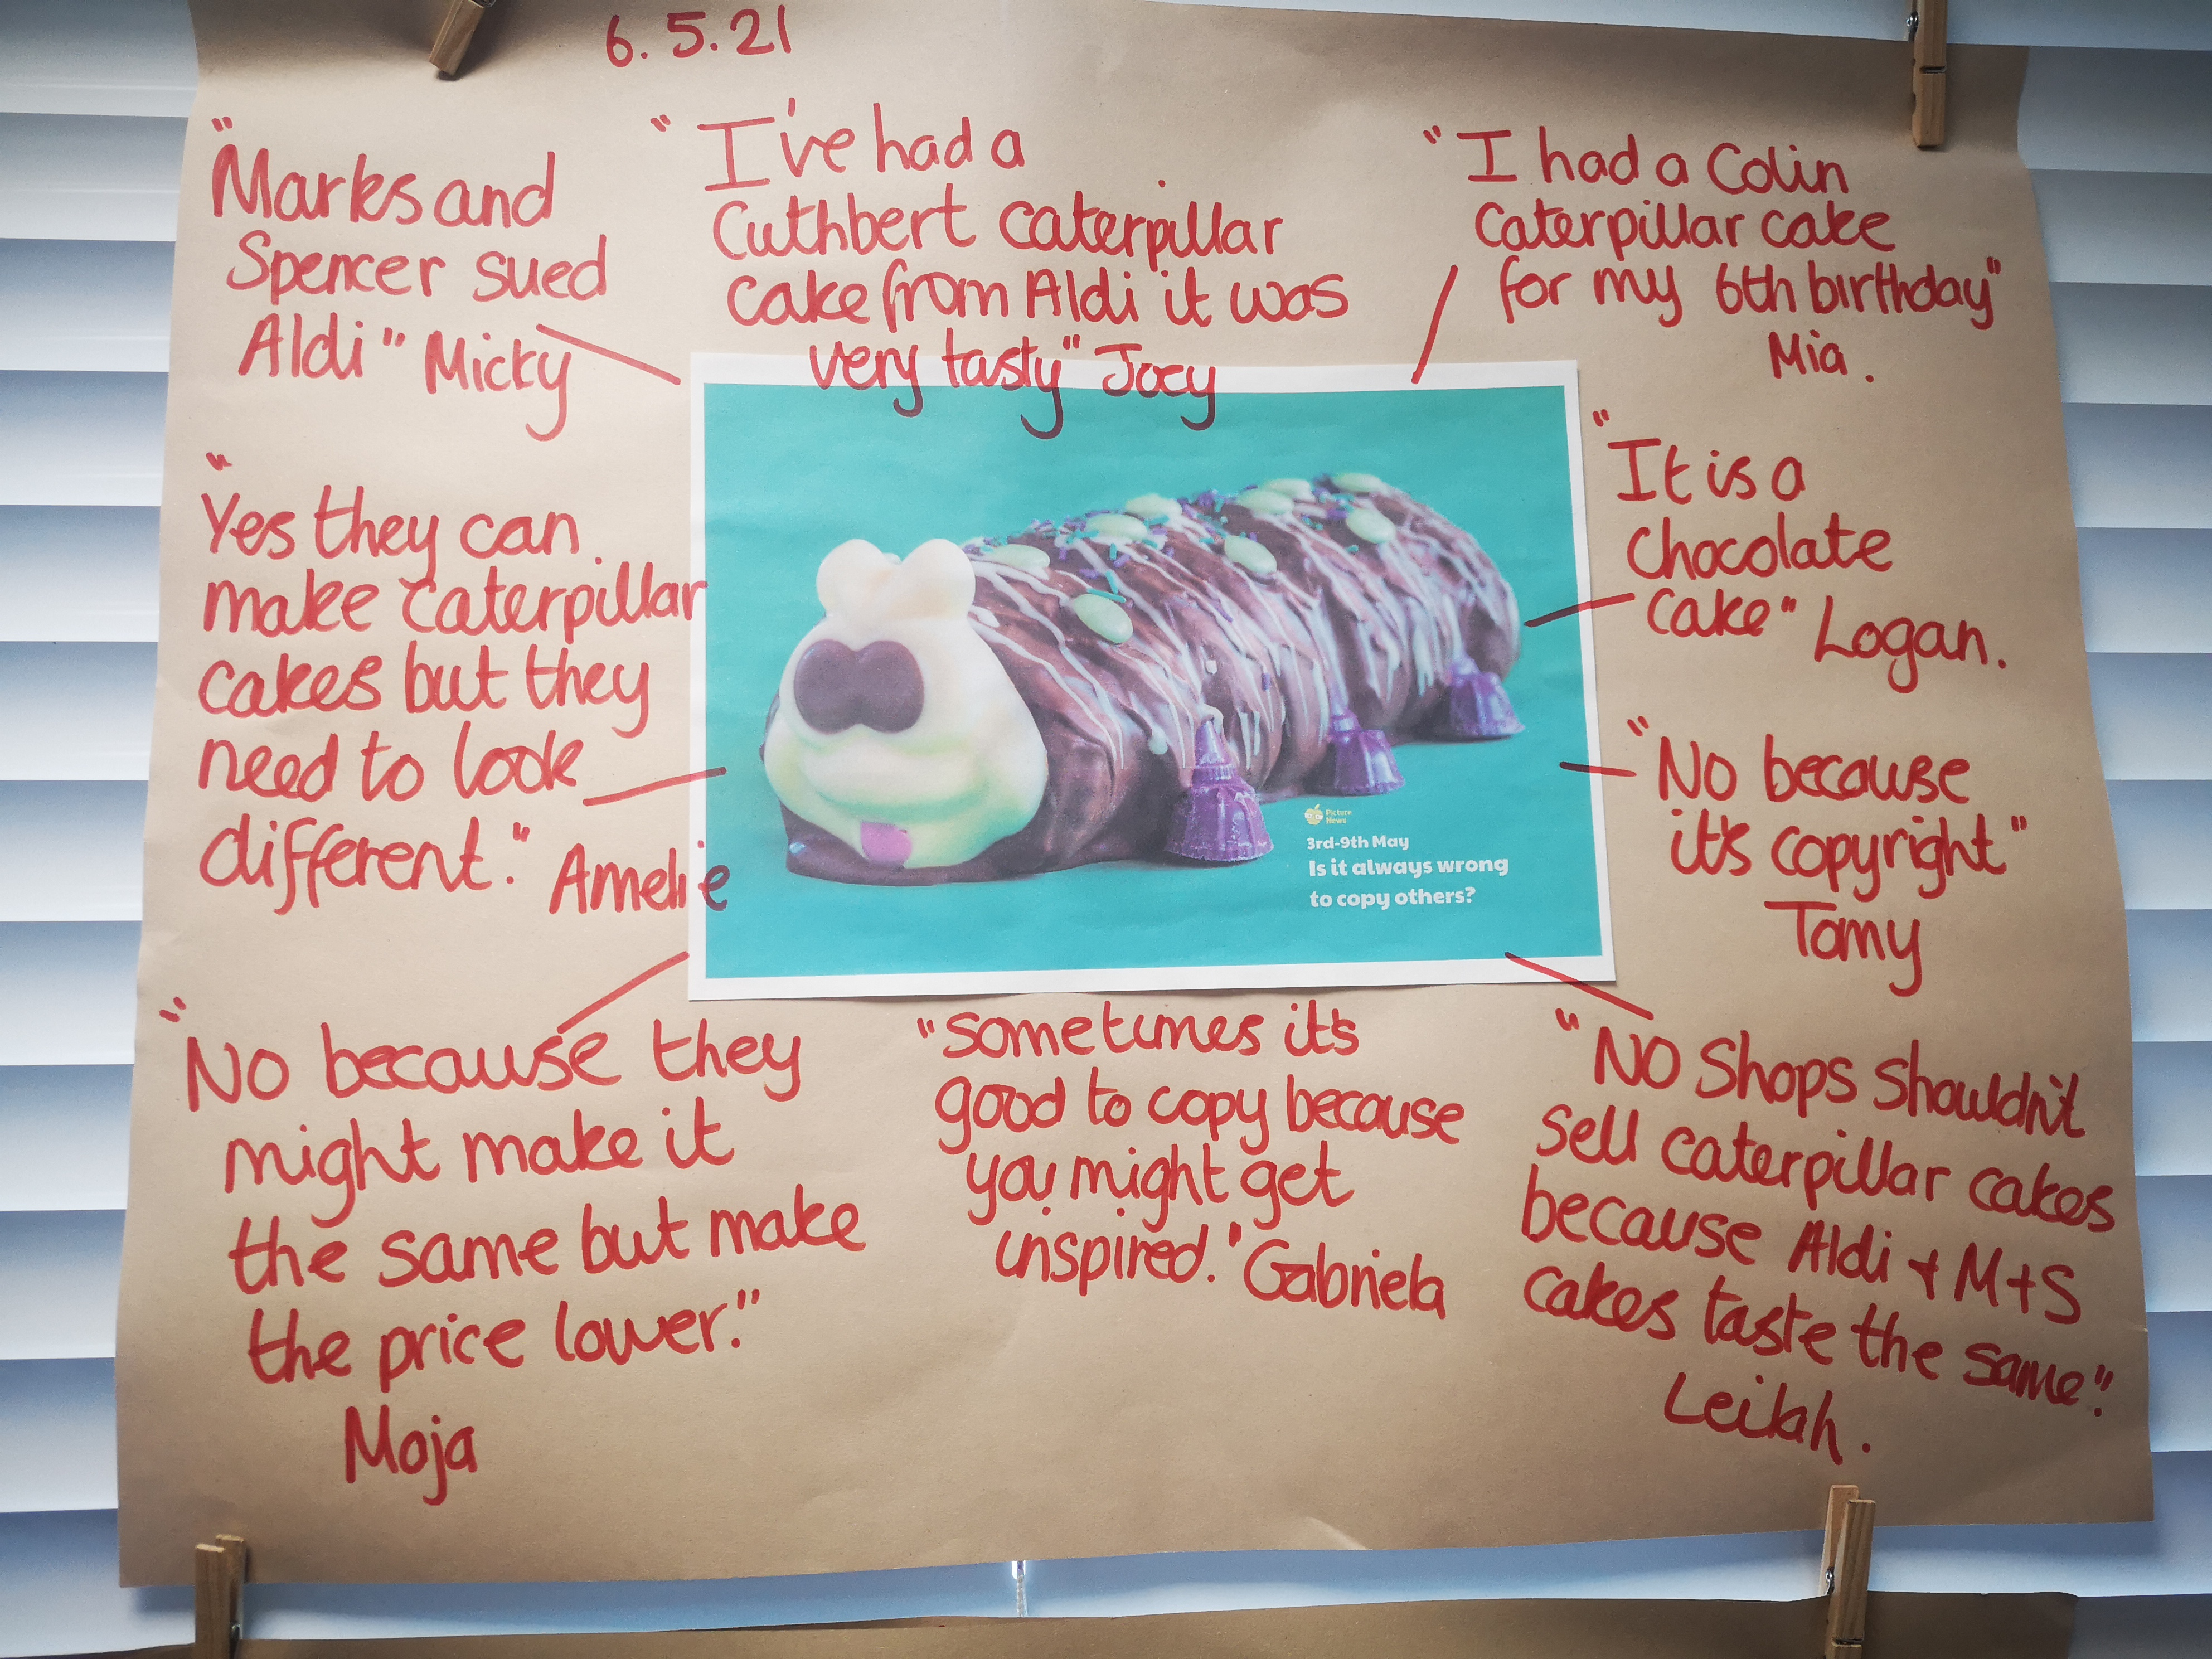 6.5.21
"Marks and
Spencer sued
Aldi" Micky
"I've had a
Cuthbert caterpillar
cake from Aldi it was
very tasty" Joey
"I had a Colin
Caterpillar cake
for my 6th birthday"
Mia.
"Yes they can
make caterpillar
cakes but they
need to look
different." Amelie
"It is a
chocolate
cake" Logan.
"No because
it's copyright"
Tomy
Picture
News
3rd-9th May
Is it always wrong
to copy others?
"No because they
might make it
the same but make
the price lower."
Moja
"Sometimes it's
good to copy because
you might get
inspired." Gabriela
"No Shops shouldn't
sell caterpillar cakes
because Aldi + M+S
cakes taste the same".
Leilah.